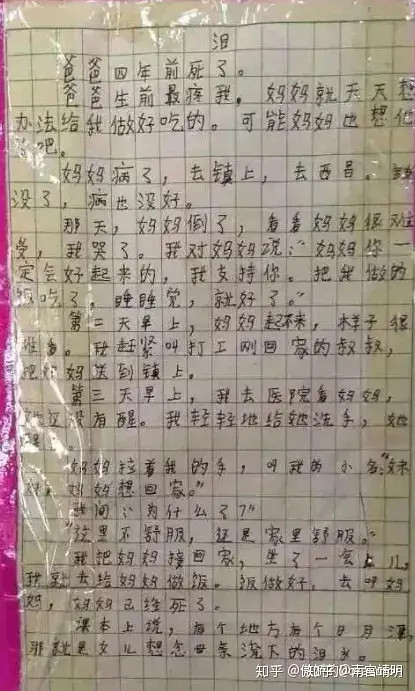 泪
爸爸四年前死了。
爸爸生前最疼我,妈妈就天天想
办法给我做好吃的。可能妈妈也想他
了吧。
妈妈病了,去镇上,去西昌。钱
没了,病也没好。
那天,妈妈倒了,看着妈妈很难
受,我哭了。我对妈妈说:“妈妈你一
定会好起来的,我支持你。把我做的
饭吃了,睡睡觉,就好了。”
第二天早上,妈妈起不来,样子很
难看。我赶紧叫打工刚回家的叔叔,
把妈妈送到镇上。
第三天早上,我去医院看妈妈,
她还没有醒。我轻轻地给她洗手,她
醒了。
妈妈拉着我的手,叫我的小名:“妹
妹,妈妈想回家。”
我问:“为什么了?”
“这里不舒服,还是家里舒服。”
我把妈妈接回家,坐了一会儿,
我就去给妈妈做饭。饭做好,去叫妈
妈,妈妈已经死了。
课本上说,有个地方有个日月潭,
那就是女儿想念母亲流下的泪水。
知乎